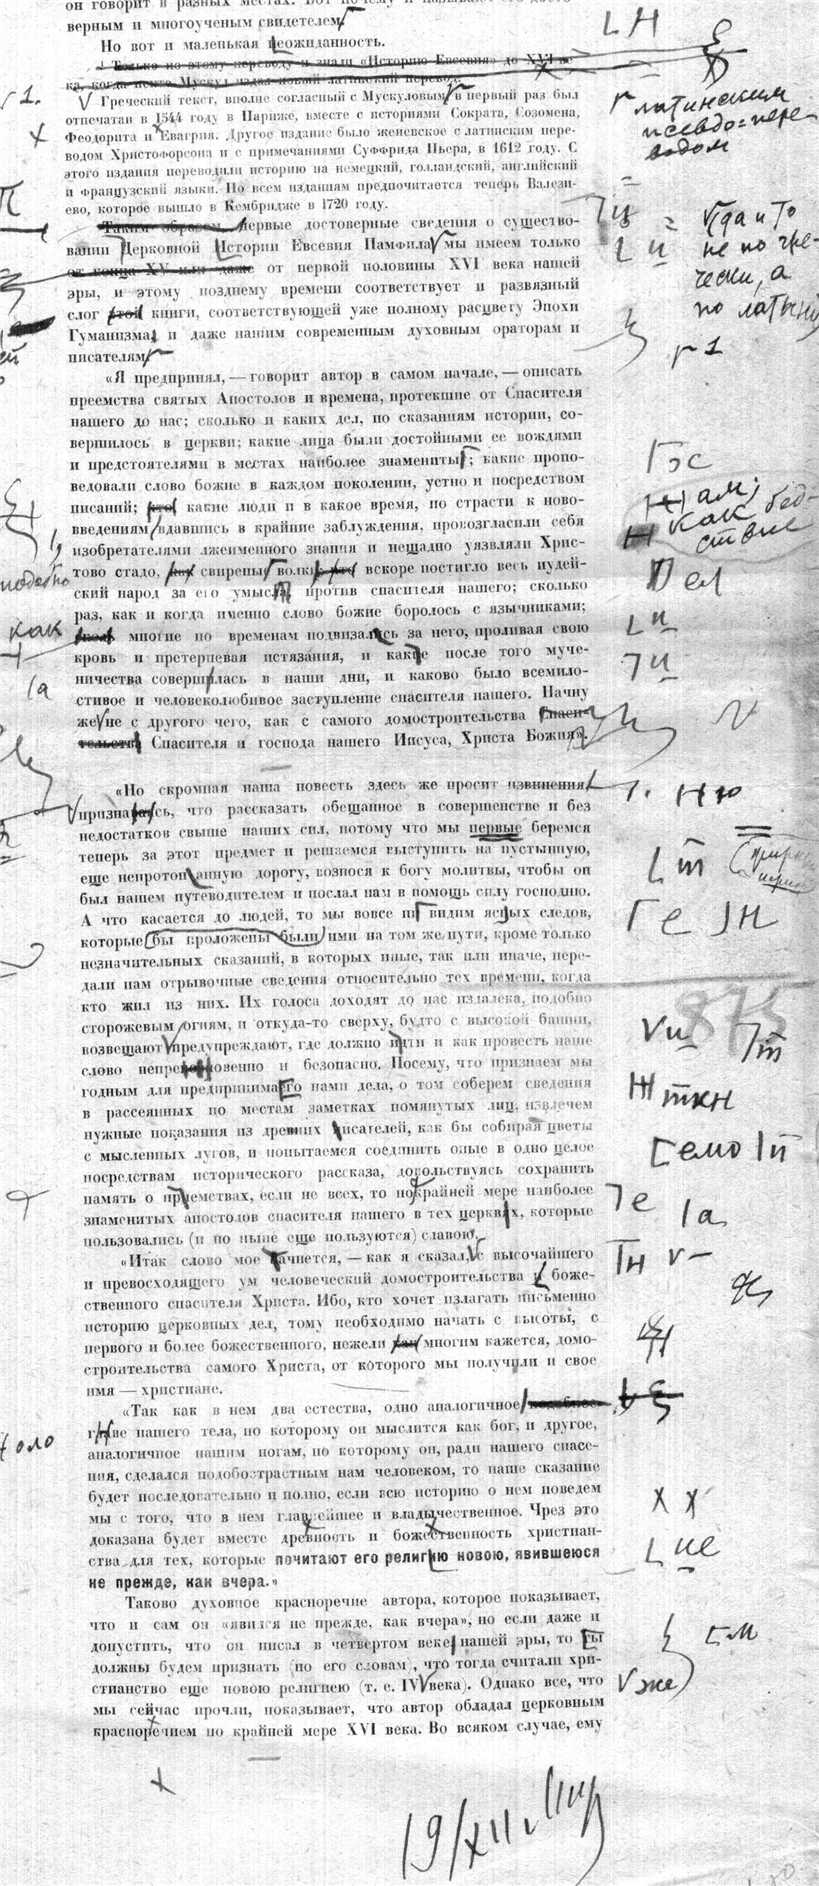 он говорит в разных местах. Вот почему и называет его досто-
верным и многоученым свидетелем
Но вот и маленькая неожиданность.
¹ Только по этому переводу и знали «Историю Евсевия» до XVI ве-
ка, когда некто Мускул издал новый латинский перевод.
Греческий текст, вполне согласный с Мускуловым в первый раз был
отпечатан в 1544 году в Париже, вместе с историями Сократа, Созомена,
Феодорита и Евагрия. Другое издание было женевское с латинским пере-
водом Христофорсона и с примечаниями Суффрида Пьера, в 1612 году. С
этого издания переводили историю на немецкий, голландский, английский
и французский языки. Но всем изданиям предпочитается теперь Валези-
ево, которое вышло в Кембридже в 1720 году.
латинским
псевдо-пере-
водом
Таким образом, первые достоверные сведения о существо-
вании Церковной Истории Евсевия Памфила мы имеем только
от конца XV или даже от первой половины XVI века нашей
эры, и этому позднему времени соответствует и развязный
слог этой книги, соответствующей уже полному расцвету Эпохи
Гуманизма, и даже нашим современным духовным ораторам и
писателям
да и то
не по гре-
чески, а
по латыни
«Я предпринял, — говорит автор в самом начале, — описать
преемства святых Апостолов и времена, протекшие от Спасителя
нашего до нас; сколько и каких дел, по сказаниям истории, со-
вершилось в церкви; какие лица были достойными ее вождями
и предстоятелями в местах наиболее знамениты; какие пропо-
ведовали слово божие в каждом поколении, устно и посредством
писаний; кто какие люди и в какое время, по страсти к ново-
введениям вдавшись в крайние заблуждения, провозгласили себя
изобретателями лжеименного знания и нещадно уязвляли Хрис-
тово стадо, как свирепы волки; что вскоре постигло весь иудей-
ский народ за его умысл против спасителя нашего; сколько
раз, как и когда именно слово божие боролось с язычниками;
многие по временам подвизались за него, проливая свою
кровь и претерпевая истязания, и какие после того муче-
ничества совершилась в наши дни, и каково было всемило-
стивое и человеколюбивое заступление спасителя нашего. Начну
же не с другого чего, как с самого домостроительства Спаси-
тельства Спасителя и господа нашего Иисуса, Христа Божия».
как бед-
ствие
подобно
как
«Но скромная наша повесть здесь же просит извинения,
признаваясь, что рассказать обещанное в совершенстве и без
недостатков свыше наших сил, потому что мы первые беремся
теперь за этот предмет и решаемся выступить на пустынную,
еще непротопанную дорогу, вознося к богу молитвы, чтобы он
был нашем путеводителем и послал нам в помощь силу господню.
А что касается до людей, то мы вовсе н видим ясных следов,
которые бы проложены были ими на том же пути, кроме только
незначительных сказаний, в которых иные, так или иначе, пере-
дали нам отрывочные сведения относительно тех времени, когда
кто жил из них. Их голоса доходят до нас издалека, подобно
сторожевым огням, и откуда-то сверху, будто с высокой башни,
возвещают предупреждают, где должно идти и как провесть наше
слово непреновенно и безопасно. Посему, что признаем мы
годным для предпринимаего нами дела, о том соберем сведения
в рассеянных по местам заметках помянутых лиц, извлечем
нужные показания из древних писателей, как бы собирая цветы
с мысленных лугов, и попытаемся соединить оные в одно целое
посредствам исторического рассказа, довольствуясь сохранить
память о приемствах, если не всех, то по крайней мере наиболее
знаменитых апостолов спасителя нашего в тех церквях, которые
пользовались (и по ныне еще пользуются) славою.
«Итак слово мое начнется, — как я сказал, с высочайшего
и превосходящего ум человеческий домостроительства и боже-
ственного спасителя Христа. Ибо, кто хочет излагать письменно
историю церковных дел, тому необходимо начать с высоты, с
первого и более божественного, нежели как многим кажется, домо-
строительства самого Христа, от которого мы получили и свое
имя — христиане.
«Так как в нем два естества, одно аналогичное
главе нашего тела, по которому он мыслится как бог, и другое,
аналогичное нашим ногам, по которому он, ради нашего спасе-
ния, сделался подобострастным нам человеком, то наше сказание
будет последовательно и полно, если всю историю о нем поведем
мы с того, что в нем главнейшее и владычественное. Чрез это
доказана будет вместе древность и божественность христиан-
ства для тех, которые почитают его религию новою, явившеюся
не прежде, как вчера.»
Таково духовное красноречие автора, которое показывает,
что и сам он «явился не прежде, как вчера», но если даже и
допустить, что он писал в четвертом веке нашей эры, то ты
должны будем признать (по его словам), что тогда считали хри-
стианство еще новою религиею (т. е. IV века). Однако все, что
мы сейчас прочли, показывает, что автор обладал церковным
красноречием по крайней мере XVI века. Во всяком случае, ему
же
19/XII